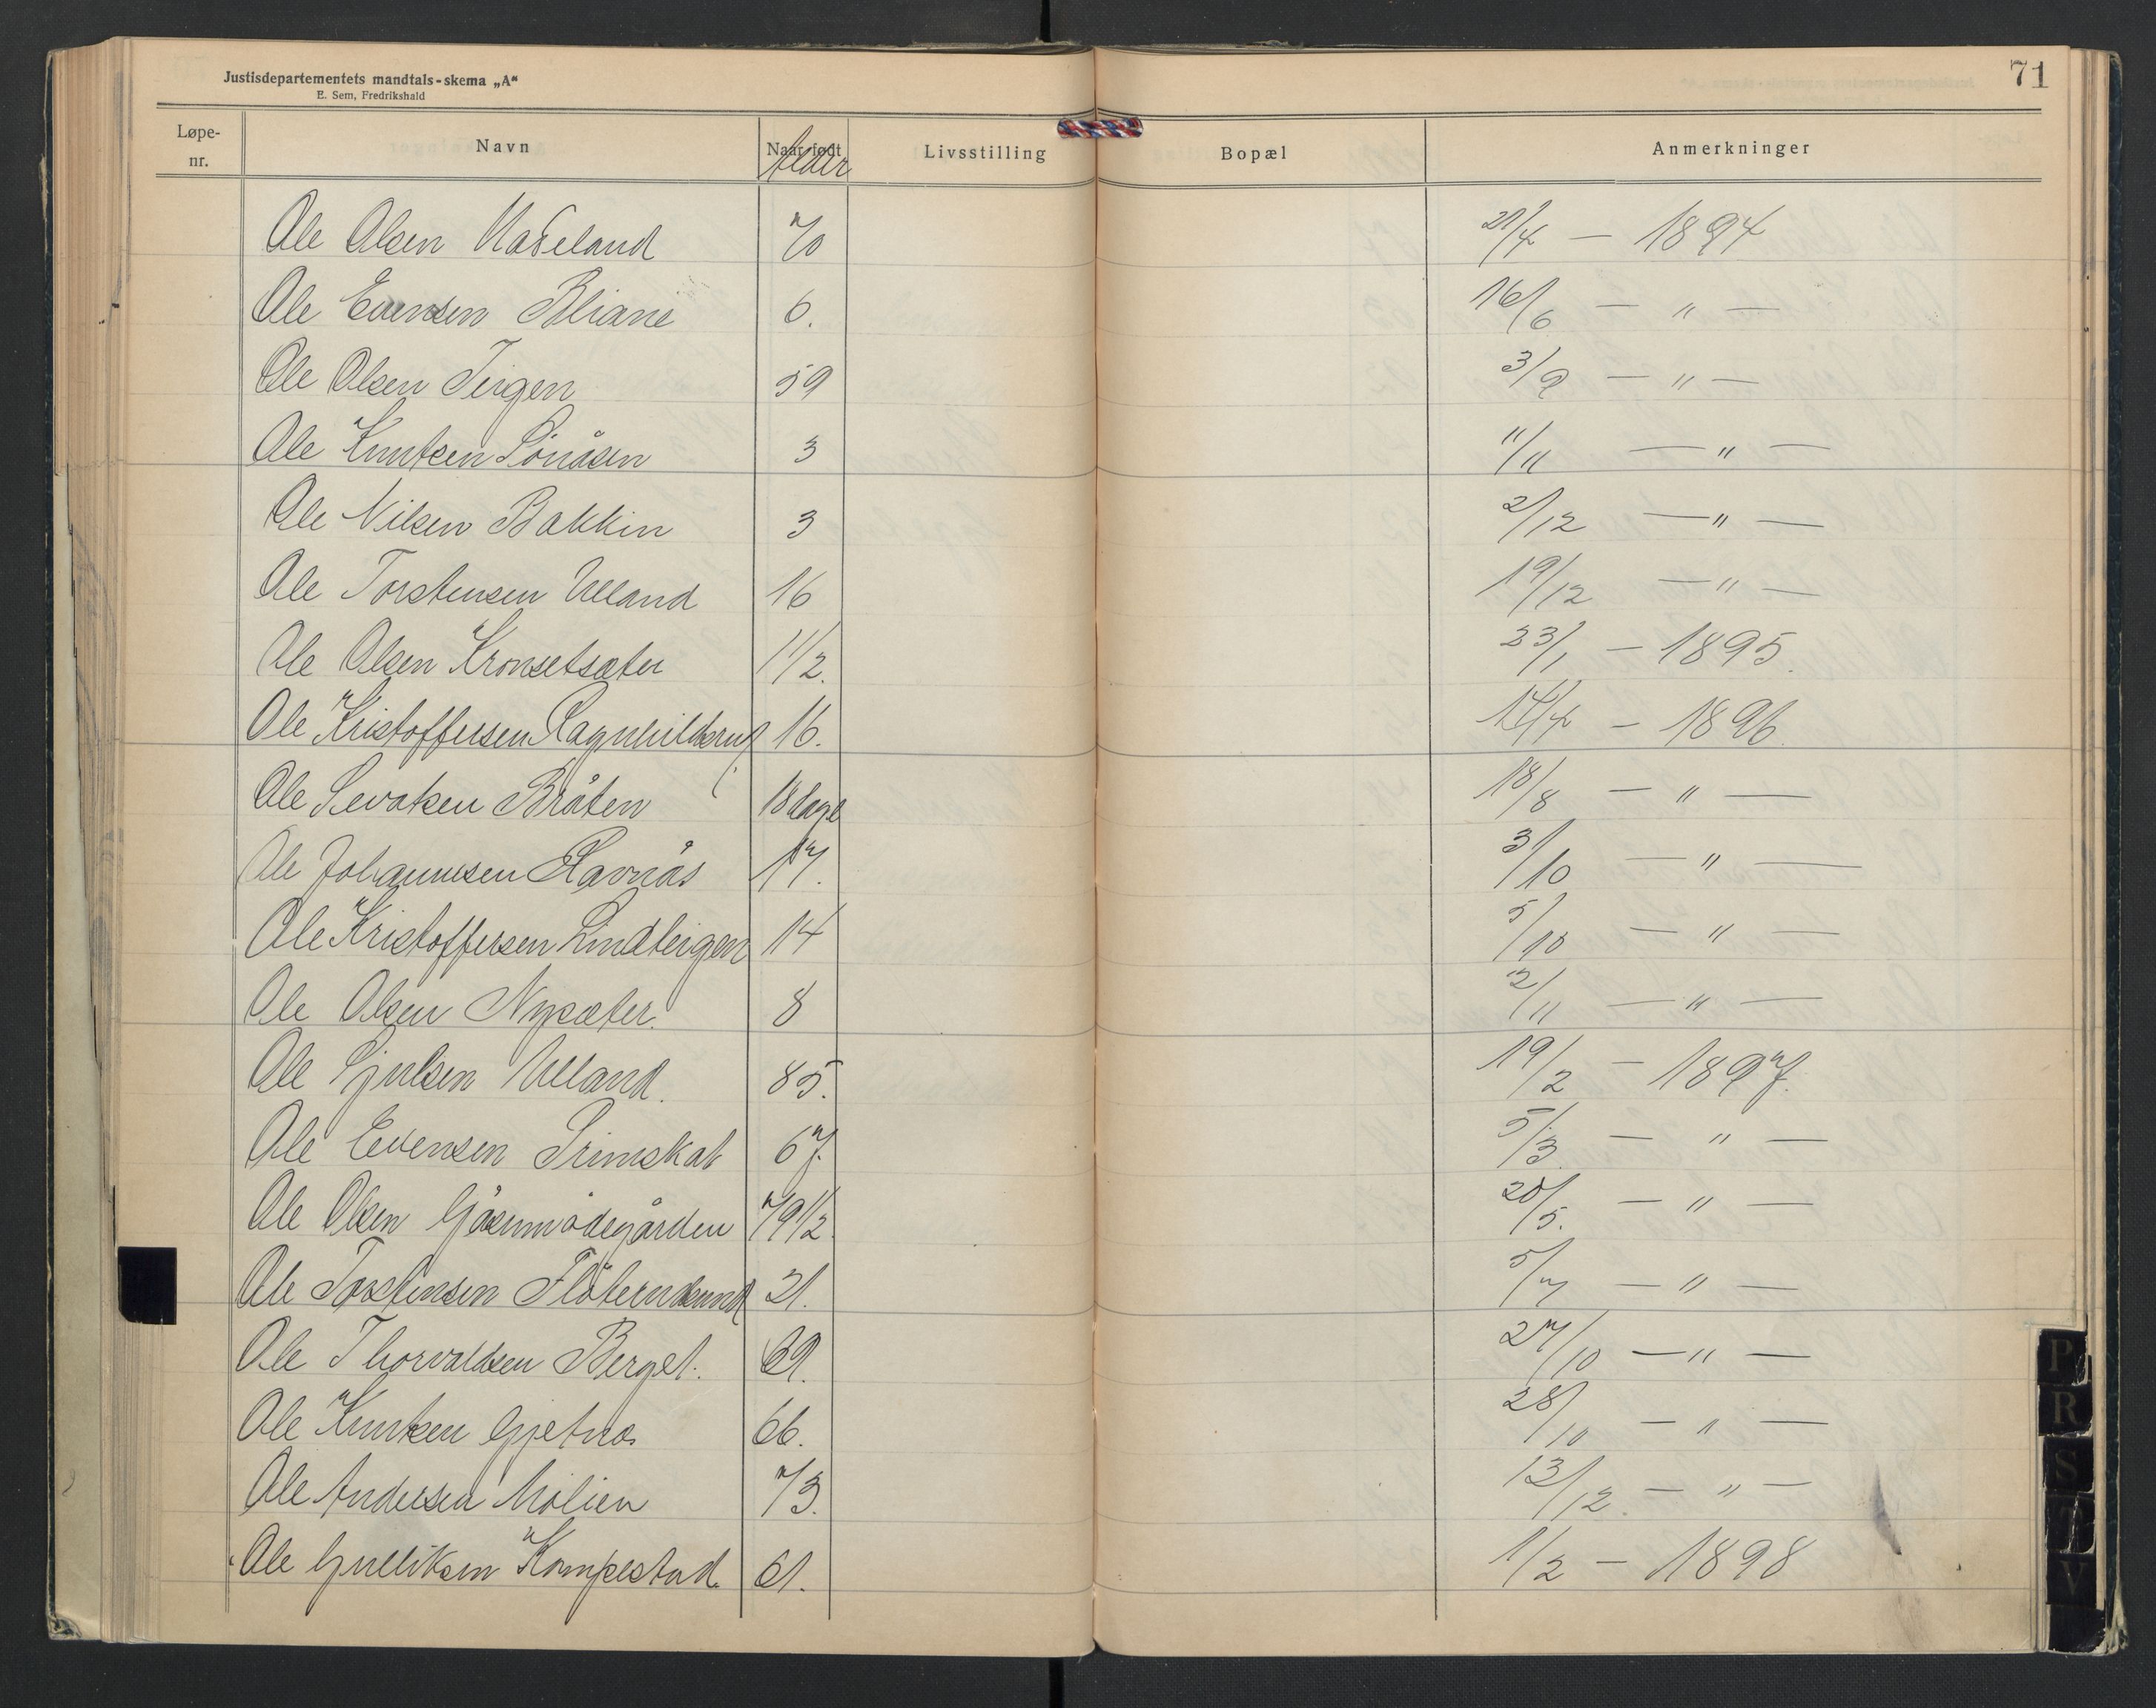 Justisdepartementets mandtals-skema „A“
E. Sem, Fredrikshald
71
Løpe-nr. Navn Naar født Alder Livsstilling Bopæl Anmerkninger
Ole Olsen Haseland 70 21/4 — 1894
Ole Evensen Bliane 6. 16/6 — " —
Ole Olsen Teigen 59 3/9 — " —
Ole Knutsen 3 11/11 — " —
Ole Nilsen Bakkin 3 2/12 — " —
Ole Torstensen Ulland 16 19/12 — " —
Ole Olsen Kronsetsæter 11/2. 23/1 — 1895.
Ole Kristoffersen Ragnhildsrud 16. 14/4 — 1896.
Ole Sevatsen Bråten 18 dage 18/8 — " —
Ole Johannesen Ravnås 17. 3/10 — " —
Ole Kristoffersen Lindteigen 14 5/10 — " —
Ole Olsen Nysæter. 8 2/11 — " —
Ole Gjulsen Ulland. 85. 19/2 — 1897.
Ole Evensen Primskat 67. 5/3. — " —
Ole Olsen 79 1/2. 20/5. — " —
Ole Torstensen 21. 5/7 — " —
Ole Thorvaldsen Berget. 69. 27/10 — " —
Ole Knutsen Gjetnos 66. 28/10 — " —
Ole Andersen Molien 73. 13/12. — " —
Ole Gulliksen Kompestad. 61. 1/2 — 1898
P
R
S
T
V